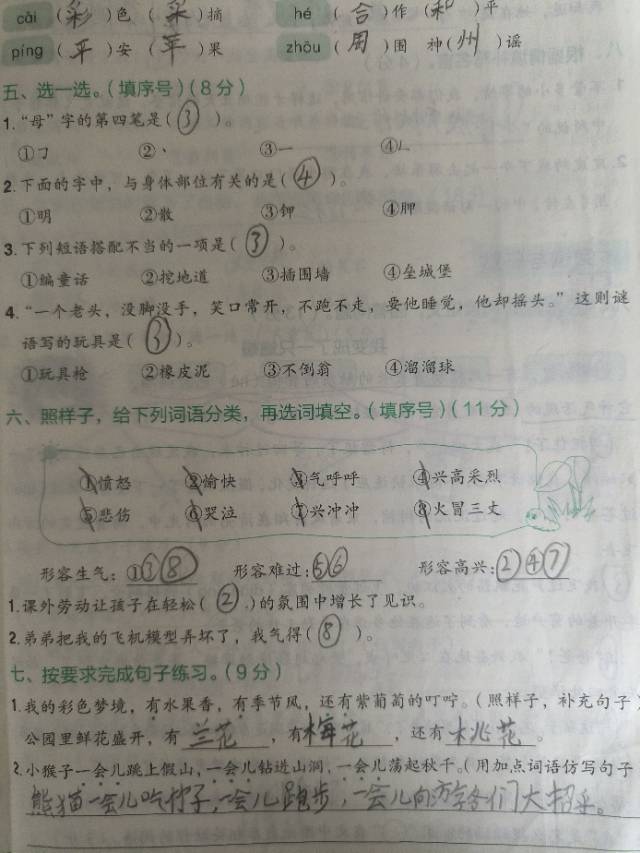 cǎi（彩）色（采）摘 hé（合）作（和）平
píng（平）安（苹）果 zhōu（周）围 神（州）谣
五、选一选。（填序号）（8分）
1.“母”字的第四笔是（③）。
①㇆ ②㇔ ③一 ④㇗
2.下面的字中，与身体部位有关的是（④）。
①明 ②散 ③钾 ④胛
3.下列短语搭配不当的一项是（③）。
①编童话 ②挖地道 ③插围墙 ④垒城堡
4.“一个老头，没脚没手，笑口常开，不跑不走，要他睡觉，他却摇头。”这则谜
语写的玩具是（③）。
①玩具枪 ②橡皮泥 ③不倒翁 ④溜溜球
六、照样子，给下列词语分类，再选词填空。（填序号）（11分）
①愤怒 ②愉快 ③气呼呼 ④兴高采烈
⑤悲伤 ⑥哭泣 ⑦兴冲冲 ⑧火冒三丈
形容生气：①③⑧ 形容难过：⑤⑥ 形容高兴：②④⑦
1.课外劳动让孩子在轻松（②）的氛围中增长了见识。
2.弟弟把我的飞机模型弄坏了，我气得（⑧）。
七、按要求完成句子练习。（9分）
1.我的彩色梦境，有水果香，有季节风，还有紫葡萄的叮咛。（照样子，补充句子
公园里鲜花盛开，有兰花，有梅花，还有桃花。
2.小猴子一会儿跳上假山，一会儿钻进山洞，一会儿荡起秋千。（用加点词语仿写句子
熊猫一会儿吃竹子，一会儿跑步，一会儿向游客们大招手。